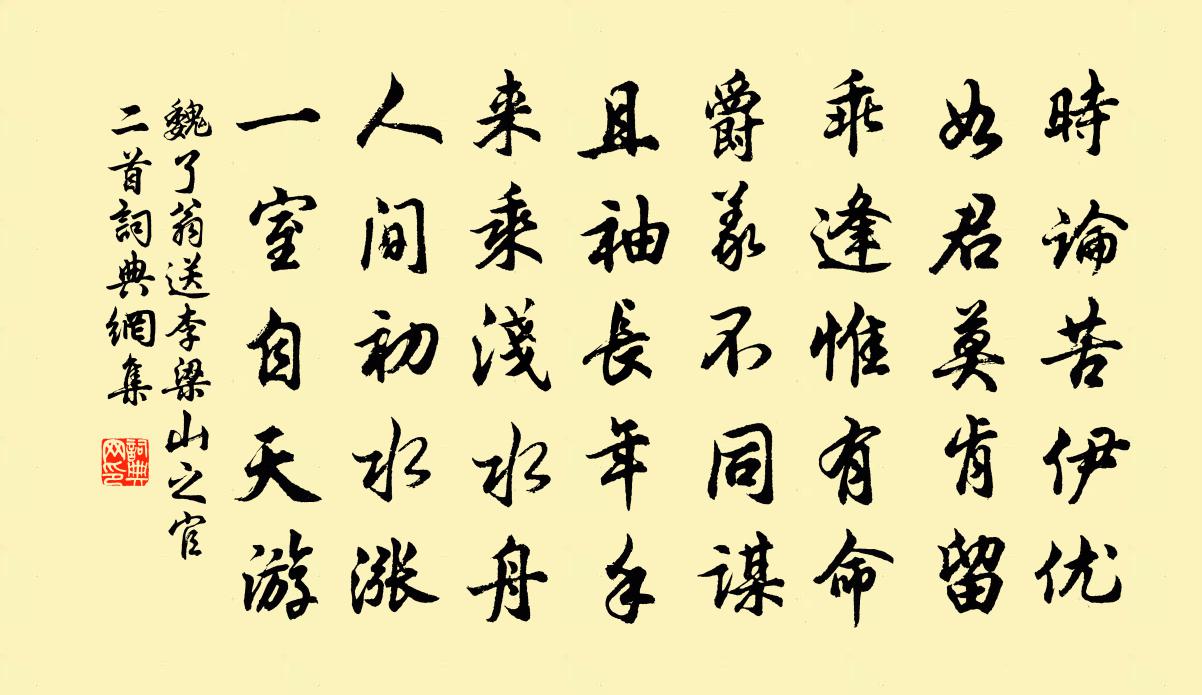 時論苦伊优
如君莫肯留
乖逢惟有命
爵義不同謀
且袖長年手
来乘淺水舟
人间初水漲
一室自天游
魏了翁送李梁山之官
二首詞典網集
詞典網印